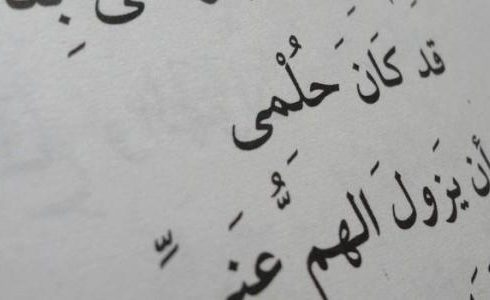 قد كَانَ حُلْمى
أن يَزولَ الهَمُّ عَنِّى